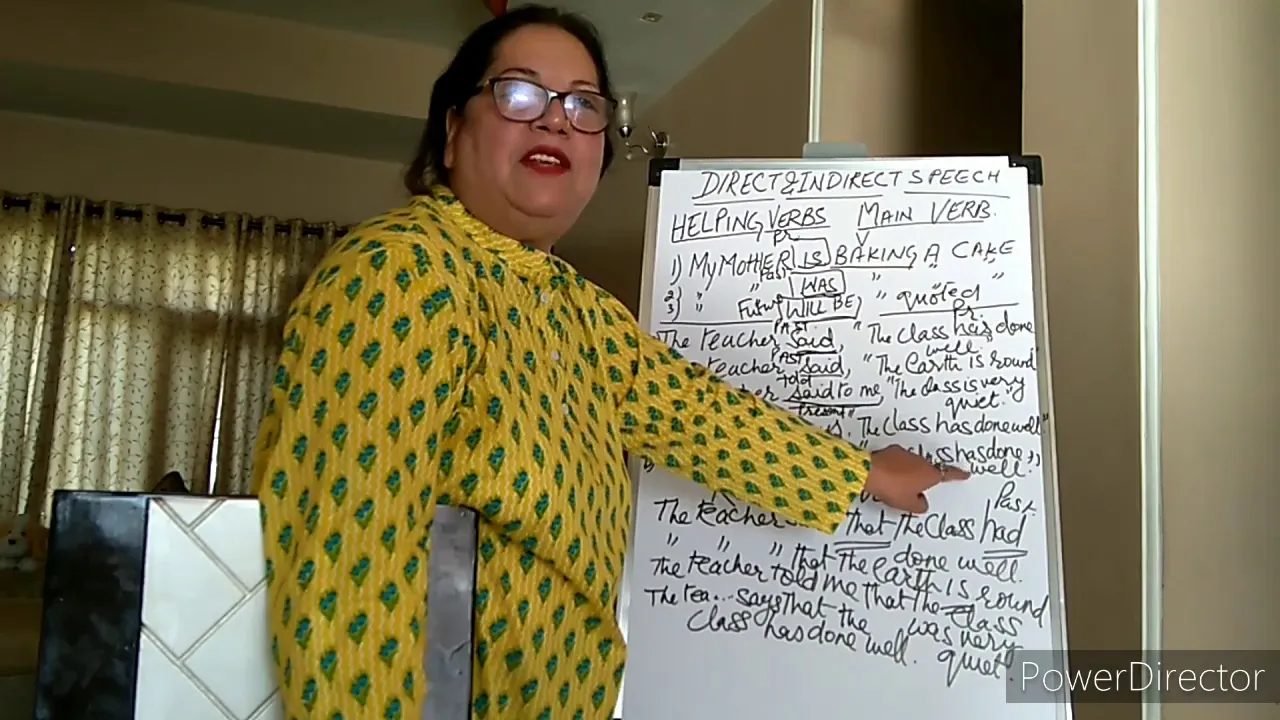 DIRECT & INDIRECT SPEECH
HELPING VERBS MAIN VERB.
Pr.
1) My MOTHER IS BAKING A CAKE
Past
2) " " WAS " " "
3) " Future WILL BE, " quoted
PAST. Pr.
The teacher said, "The class has done well."
PAST
teacher said, "The Earth is round"
told
said to me "The class is very quiet."
Present
"The class has done well"
has done well."
Past
The teacher that the class had done well.
" " " that the earth is round
The teacher told me that the class was very quiet.
The tea... says that the class has done well.
PowerDirector